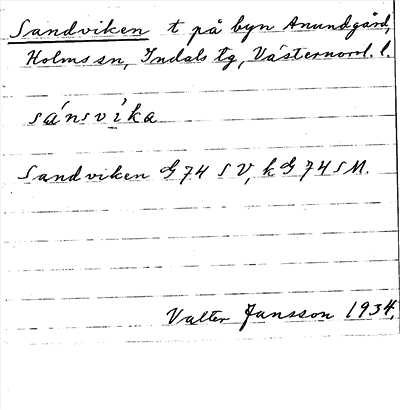 Sandviken t på byn Anundgård,
Holms sn, Indals tg, Västernorrl. l.
sánsvìka
Sandviken G 74 SV, k G 74 SM.
Valter Jansson 1934.